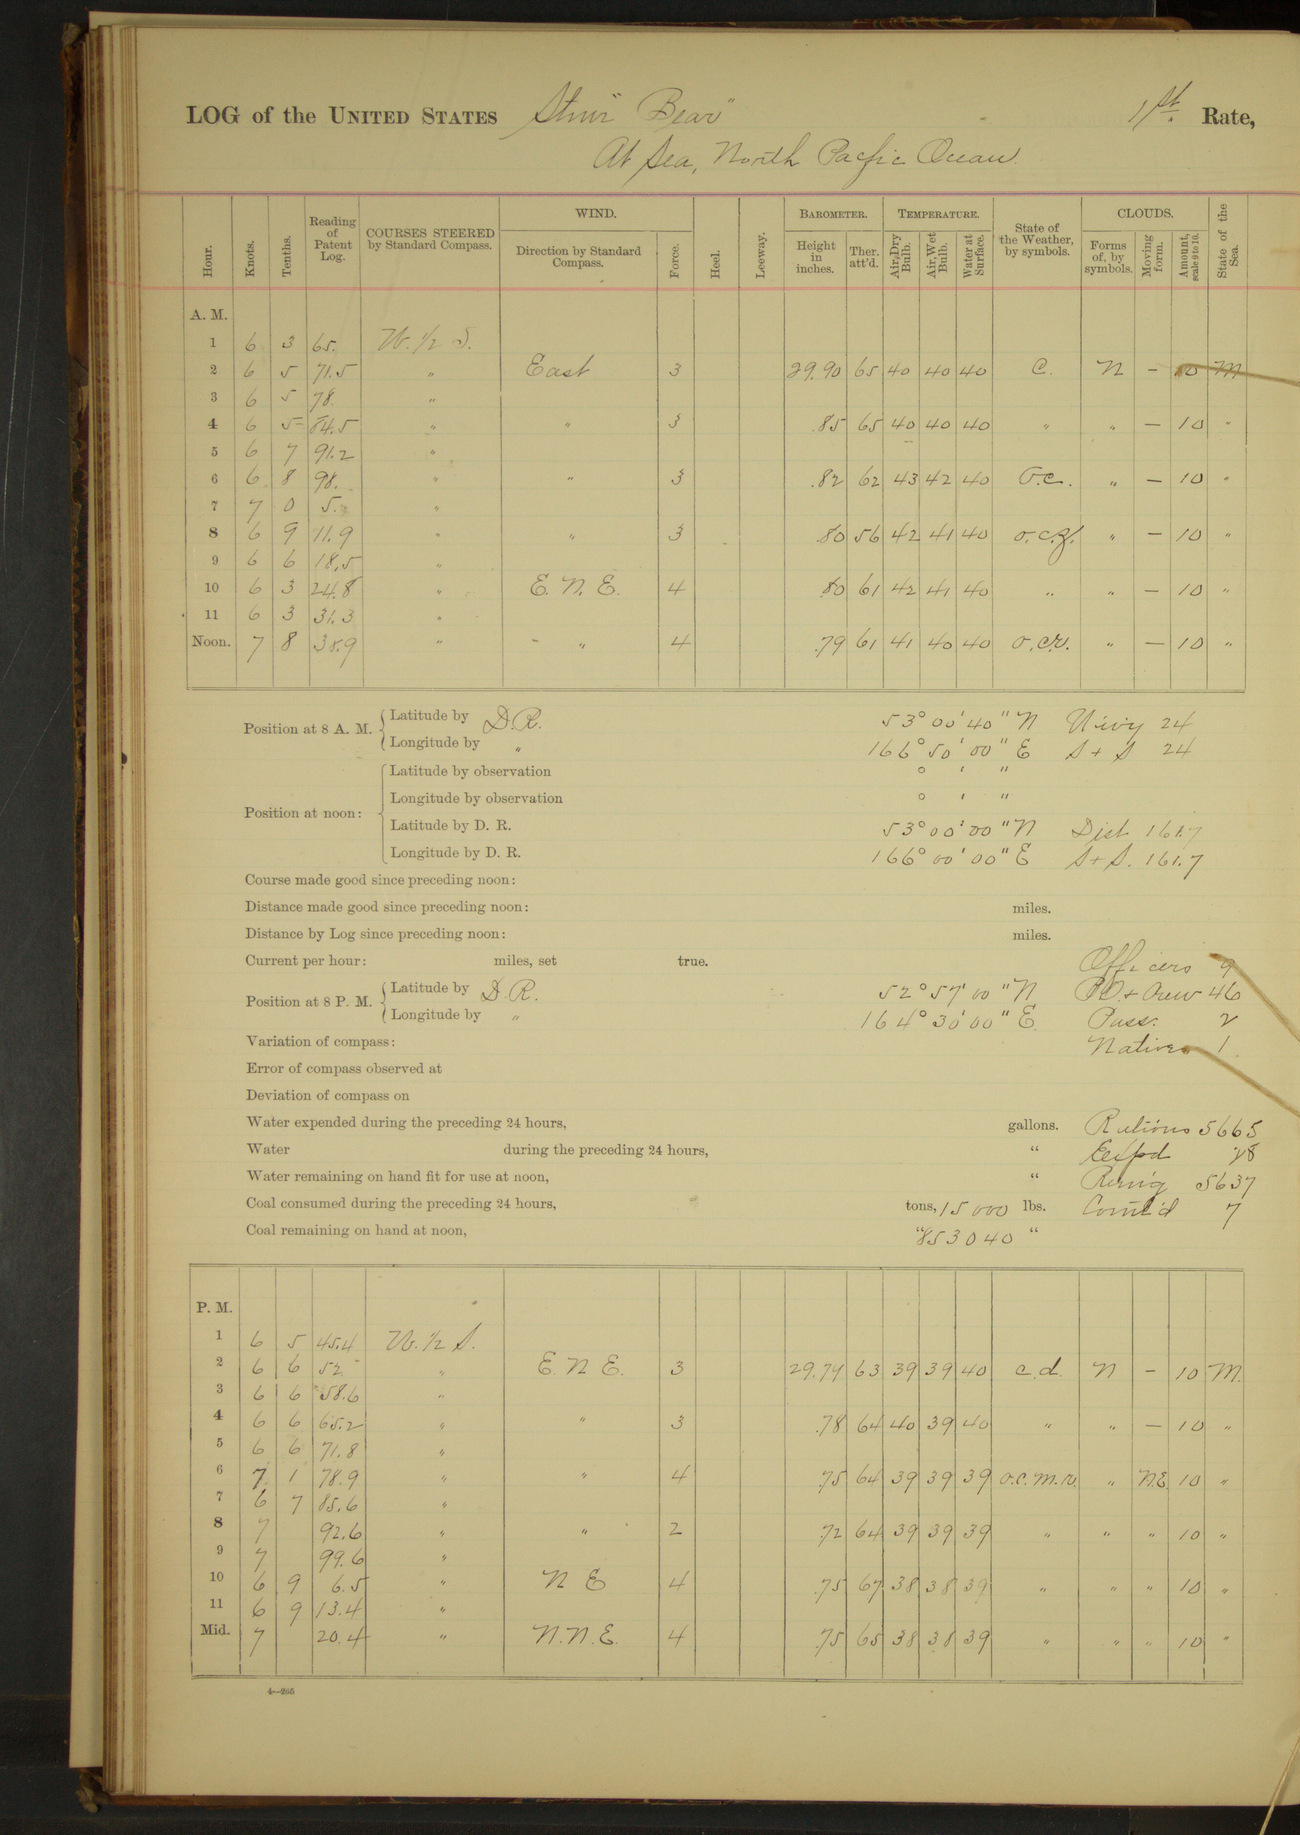 LOG of the UNITED STATES Stmr "Bear" 1st. Rate,
At Sea, North Pacific Ocean.
Hour. Knots. Tenths. Reading of Patent Log. COURSES STEERED by Standard Compass. WIND. Direction by Standard Compass. Force. Heel. Leeway. BAROMETER. Height in inches. Ther. att'd. TEMPERATURE. Air, Dry Bulb. Air, Wet Bulb. Water at Surface. State of the Weather, by symbols. CLOUDS. Forms of, by symbols. Moving form. Amount, scale 0 to 10. State of the Sea.
A. M.
1 6 3 65. W. 1/2 S.
2 6 5 71.5 " East 3 29.90 65 40 40 40 C. N — 10 M
3 6 5 78. "
4 6 5 84.5 " " 3 .85 65 40 40 40 " " — 10 "
5 6 7 91.2 "
6 6 8 98. " " 3 .82 62 43 42 40 O.c. " — 10 "
7 7 0 5. "
8 6 9 11.9 " " 3 .80 56 42 41 40 o.c.z. " — 10 "
9 6 6 18.5 "
10 6 3 24.8 " E. N. E. 4 .80 61 42 41 40 " " — 10 "
11 6 3 31.3 "
Noon. 7 8 38.9 " " 4 .79 61 41 40 40 o.c.r. " — 10 "
Position at 8 A. M. Latitude by D.R. 53° 00' 40" N 24
Longitude by " 166° 50' 00" E S + S 24
Position at noon: Latitude by observation ° ' "
Longitude by observation ° ' "
Latitude by D. R. 53° 00' 00" N Dist 161.7
Longitude by D. R. 166° 00' 00" E S + S. 161.7
Course made good since preceding noon:
Distance made good since preceding noon: miles.
Distance by Log since preceding noon: miles.
Current per hour: miles, set true. Officers 9
Position at 8 P. M. Latitude by D.R. 52° 57' 00" N PO. + Crew 46
Longitude by " 164° 30' 00" E. Pass. 2
Variation of compass: Natives 1
Error of compass observed at
Deviation of compass on
Water expended during the preceding 24 hours, gallons. Rations 5665
Water during the preceding 24 hours, " Exp'd 28
Water remaining on hand fit for use at noon, " Rem'g 5637
Coal consumed during the preceding 24 hours, tons, 15000 lbs. Com'd 7
Coal remaining on hand at noon, " 853040 "
P. M.
1 6 5 45.4 W. 1/2 S.
2 6 6 52 " E N E. 3 29.74 63 39 39 40 c.d. N — 10 M.
3 6 6 58.6 "
4 6 6 65.2 " " 3 .78 64 40 39 40 " " — 10 "
5 6 6 71.8 "
6 7 1 78.9 " " 4 .75 64 39 39 39 o.c.m.r. " N.E. 10 "
7 6 7 85.6 "
8 7 92.6 " " 2 .72 64 39 39 39 " " " 10 "
9 7 99.6 "
10 6 9 6.5 " N E 4 .75 67 38 38 39 " " " 10 "
11 6 9 13.4 "
Mid. 7 20.4 " N.N.E. 4 .75 65 38 38 39 " " " 10 "
4—265